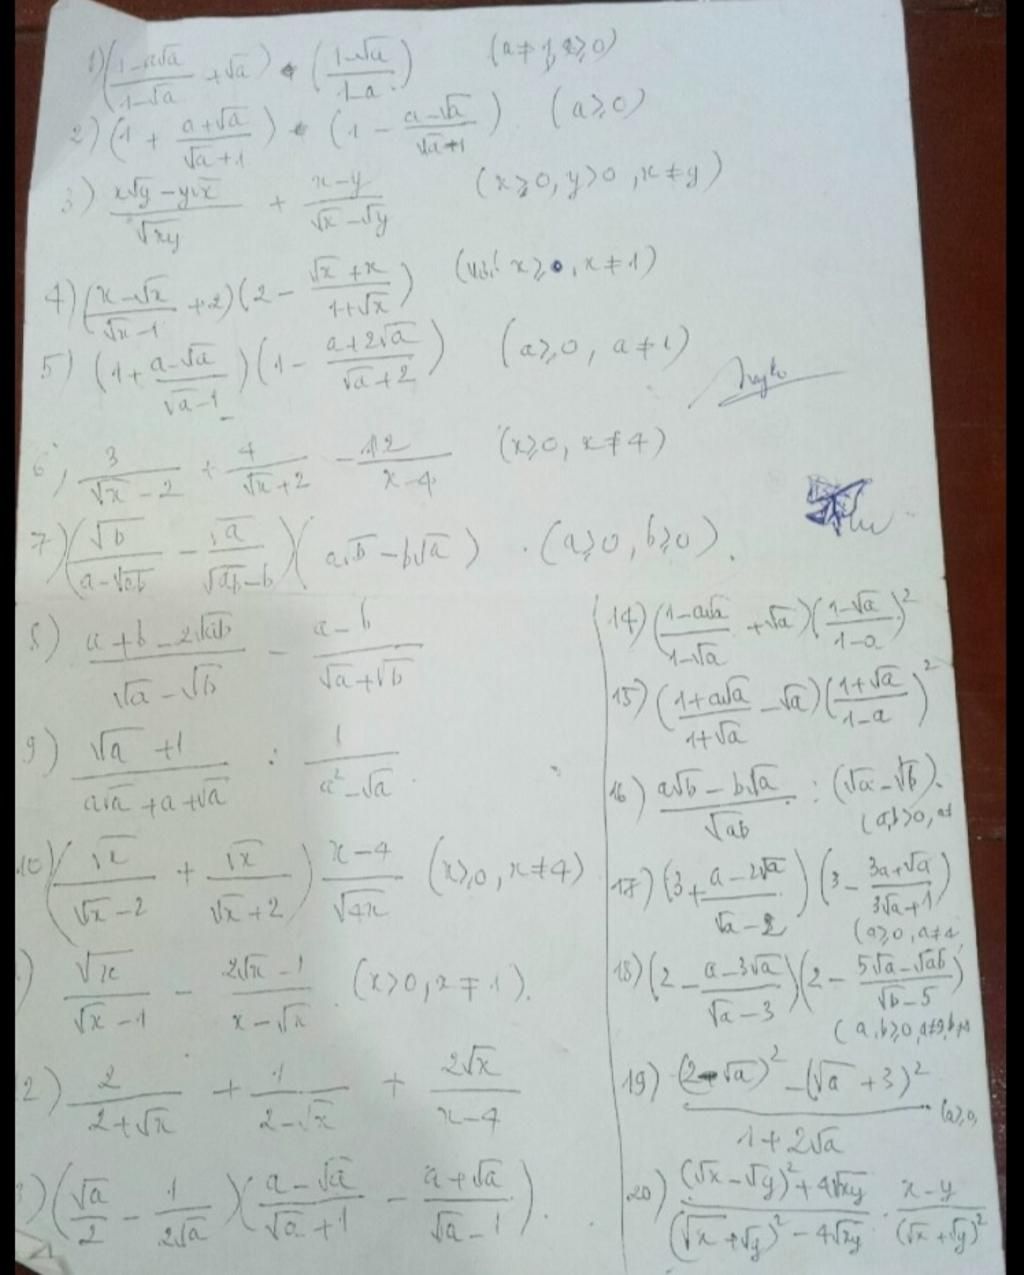 1) ((1-a√a)/(1-√a) + √a) · ((1-√a)/(1-a)) (a≠1, a≥0)
2) (1 + (a+√a)/(√a+1)) · (1 - (a-√a)/(√a+1)) (a≥0)
3) (x√y-y√x)/√xy + (x-y)/(√x-√y) (x≥0, y>0, x≠y)
4) ((x-√x)/(√x-1) + 2)(2 - (√x+x)/(1+√x)) (với x≥0, x≠1)
5) (1 + (a-√a)/(√a-1))(1 - (a+2√a)/(√a+2)) (a≥0, a≠1)
6) 3/(√x-2) + 4/(√x+2) - 12/(x-4) (x≥0, x≠4)
7) (√b/(a-√ab) - √a/(√ab-b))(a√b-b√a) . (a≥0, b≥0).
8) (a+b-2√ab)/(√a-√b) - (a-b)/(√a+√b)
9) (√a+1)/(a√a+a+√a) : 1/(a²-√a)
10) (√x/(√x-2) + √x/(√x+2)) (x-4)/√4x (x≥0, x≠4)
) √x/(√x-1) - (2√x-1)/(x-√x) (x>0, x≠1).
2) 2/(2+√x) + 1/(2-√x) + 2√x/(x-4)
3) (√a/2 - 1/(2√a))((a-√a)/(√a+1) - (a+√a)/(√a-1)).
14) ((1-a√a)/(1-√a) + √a)((1-√a)/(1-a))²
15) ((1+a√a)/(1+√a) - √a)((1+√a)/(1-a))²
16) (a√b-b√a)/√ab : (√a-√b).
(a,b>0, a≠
17) (3 + (a-2√a)/(√a-2))(3 - (3a+√a)/(3√a+1))
(a≥0, a≠4
18) (2 - (a-3√a)/(√a-3))(2 - (5√a-√ab)/(√b-5))
(a,b≥0, a≠9, b≠
19) ((2-√a)²-(√a+3)²)/(1+2√a) (a≥0,
20) ((√x-√y)²+4√xy)/((√x+√y)²-4√xy) · (x-y)/(√x+√y)²